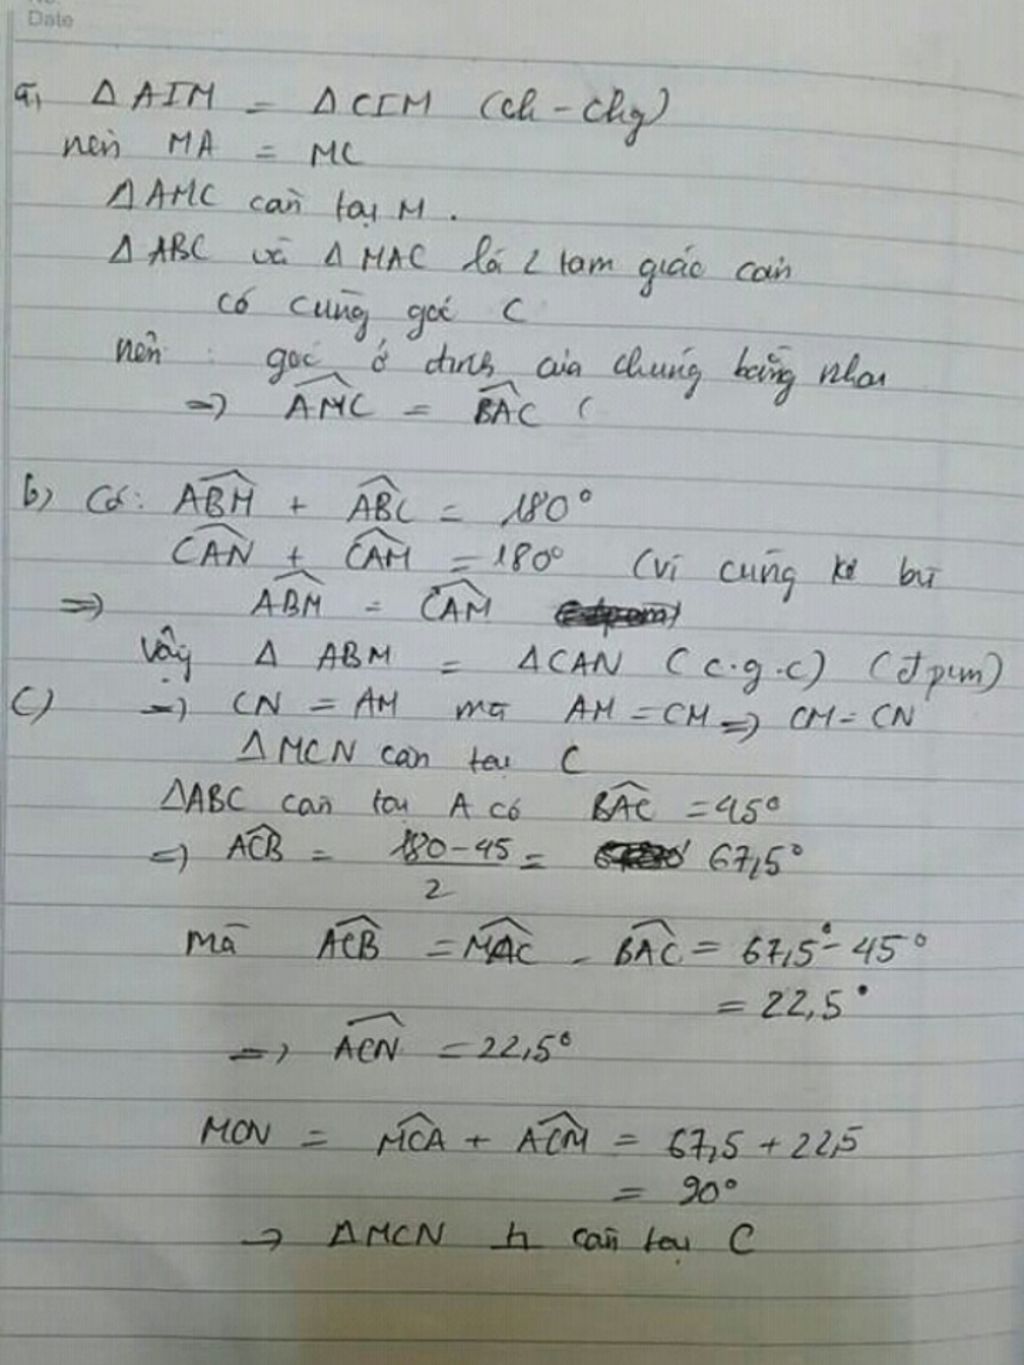 Date
a, Δ AIM = Δ CIM (ch - chg)
nên MA = MC
Δ AMC cân tại M.
Δ ABC và Δ MAC là 2 tam giác cân
có cùng góc C
nên: góc ở đỉnh của chúng bằng nhau
=> AMC = BAC (
b) Có: ABM + ABC = 180°
CAN + CAM = 180° (vì cùng kề bù
=> ABM = CAM
Vậy Δ ABM = ΔCAN (c.g.c) (đpcm)
c) => CN = AM mà AM = CM => CM = CN
ΔMCN cân tại C
ΔABC cân tại A có BAC = 45°
=> ACB = 180-45 / 2 = 67,5°
mà ACB = MAC - BAC = 67,5° - 45°
= 22,5°
=> ACN = 22,5°
MCN = MCA + ACM = 67,5 + 22,5
= 90°
→ ΔMCN cân tại C